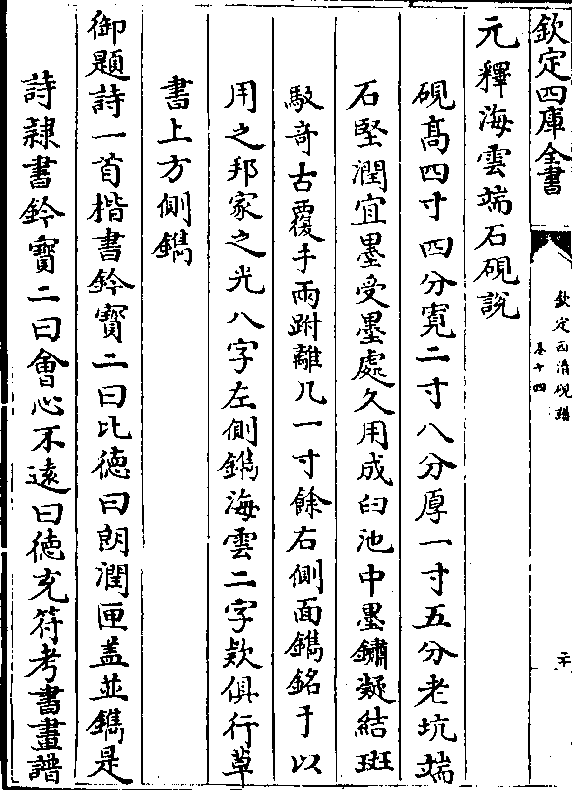 欽定四庫全書
欽定西清硯譜
卷十四
二十
元釋海雲端石硯說
硯高四寸四分寬二寸八分厚一寸五分老坑端
石堅潤宜墨受墨處久用成臼池中墨鏽凝結斑
駁竒古覆手兩跗離几一寸餘右側面鐫銘于以
用之邦家之光八字左側鐫海雲二字欵俱行草
書上方側鐫
御題詩一首楷書鈐寶二曰比德曰朗潤匣盖並鐫是
詩隷書鈐寶二曰會心不逺曰德充符考書畫譜